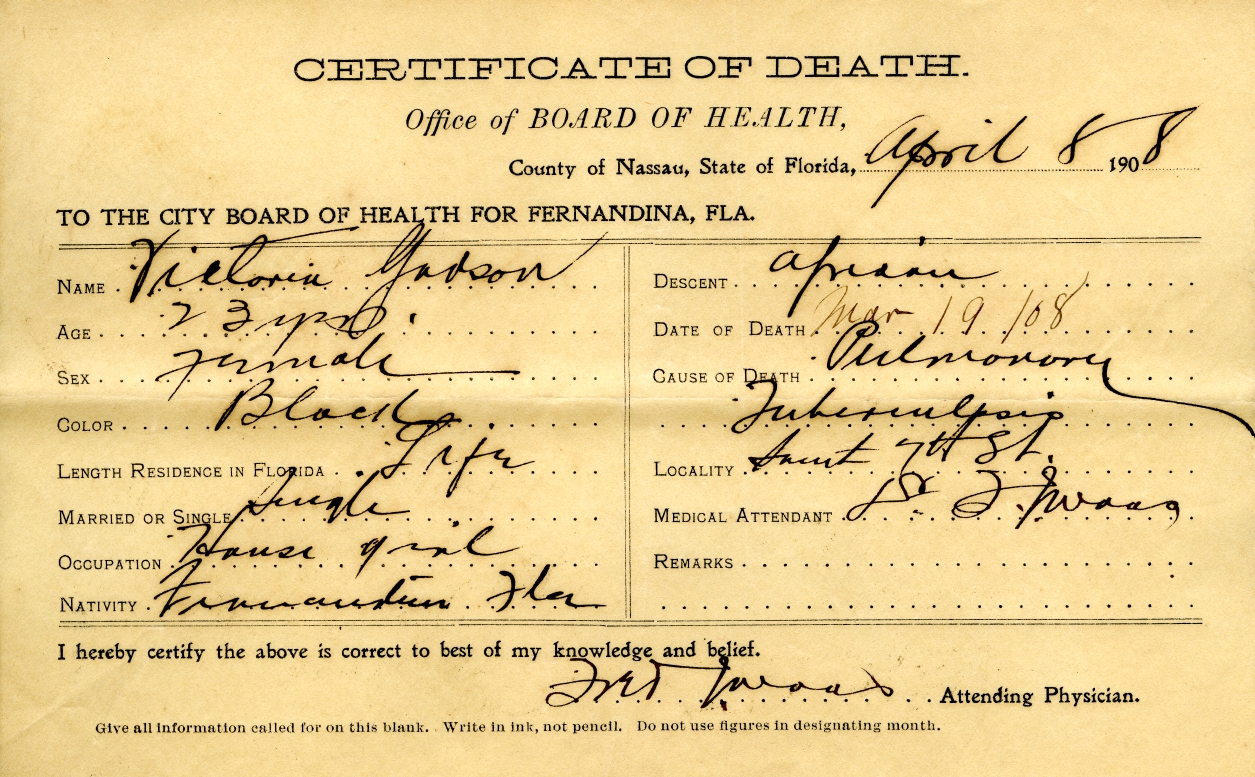 CERTIFICATE OF DEATH.
Office of BOARD OF HEALTH,
County of Nassau, State of Florida, April 8 1908
TO THE CITY BOARD OF HEALTH FOR FERNANDINA, FLA.
NAME Victoria Gadson
AGE 23 yrs.
SEX Female
COLOR Black
LENGTH RESIDENCE IN FLORIDA Life
MARRIED OR SINGLE Single
OCCUPATION House girl
NATIVITY Fernandina Fla
DESCENT African
DATE OF DEATH Mar 19 /08
CAUSE OF DEATH Pulmonary
Tuberculosis
LOCALITY 7th St.
MEDICAL ATTENDANT Dr F J Waas
REMARKS
I hereby certify the above is correct to best of my knowledge and belief.
Fred J Waas Attending Physician.
Give all information called for on this blank. Write in ink, not pencil. Do not use figures in designating month.